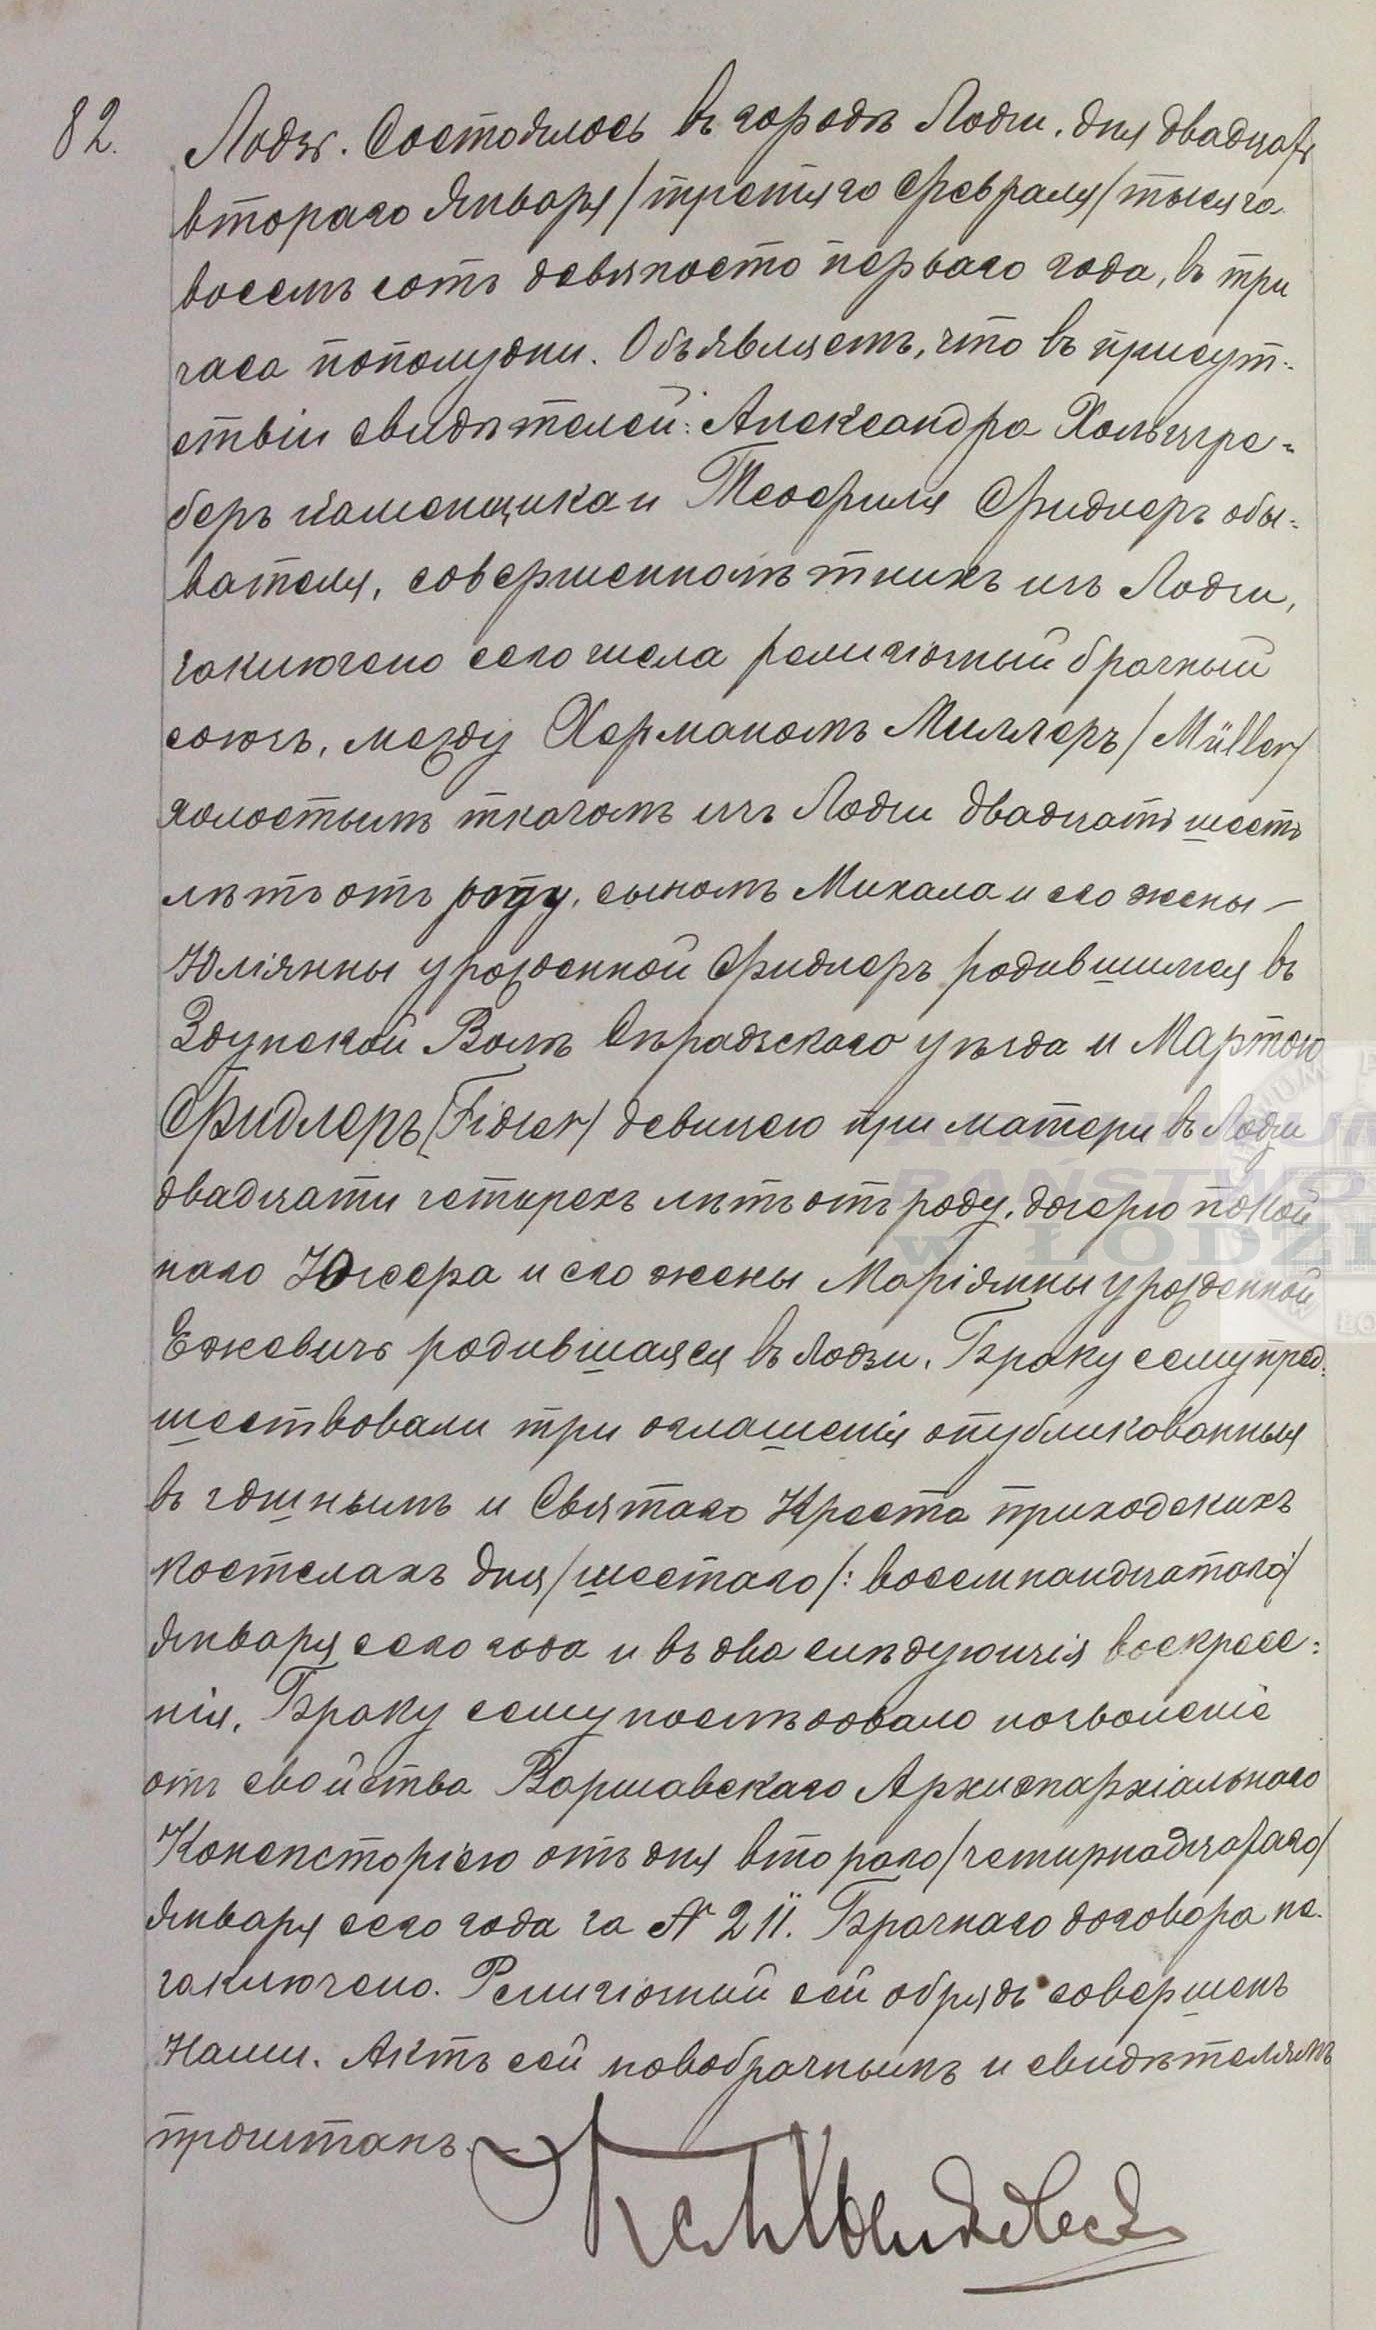 82.
Лодзь. Состоялось въ городѣ Лодзи, дня двадцать
втораго Января /третьяго Февраля/ тысяча
восемьсотъ девяносто перваго года, въ три
часа пополудни. Объявляемъ, что въ присут-
ствіи свидѣтелей: Александра Хольцгре-
беръ каменщика и Теофиля Фидлеръ обы-
вателя, совершеннолѣтнихъ изъ Лодзи,
заключено сего числа религіозный брачный
союзъ, между Херманомъ Миллеръ /Müller/
холостымъ ткачомъ изъ Лодзи двадцать шесть
лѣтъ отъ роду, сыномъ Михала и его жены –
Юліянны урожденной Фидлеръ родившимся въ
Здунской Волѣ Сѣрадзскаго уѣзда и Мартою
Фидлеръ /Fidler/ девицею при матери въ Лодзи
двадцати четырехъ лѣтъ отъ роду, дочерю покой
наго Юзефа и его жены Маріянны урожденной
Ежевичъ родившаяся въ Лодзи. Браку сему пред-
шествовали три оглашенія опубликованныя
въ здѣшнымъ и Святаго Креста приходскихъ
костелахъ дня /шестаго/: восемнандцатаго/
Января сего года и въ два слѣдующія воскресе-
нія. Браку сему послѣдовало позволеніе
отъ свойства Варшавскаго Архиепархіальнаго
Консисторіею отъ дня втораго /четырнадцатаго/
Января сего года за № 211. Брачнаго договора не
заключено. Религіозный сей обрядъ совершенъ
Нами. Актъ сей новобрачнымъ и свидѣтелямъ
прочитанъ.
ARCHIWUM
PAŃSTWO
w ŁODZI